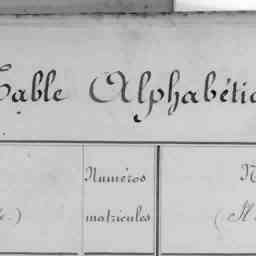 Table Alphabétic
Numéros
matricules